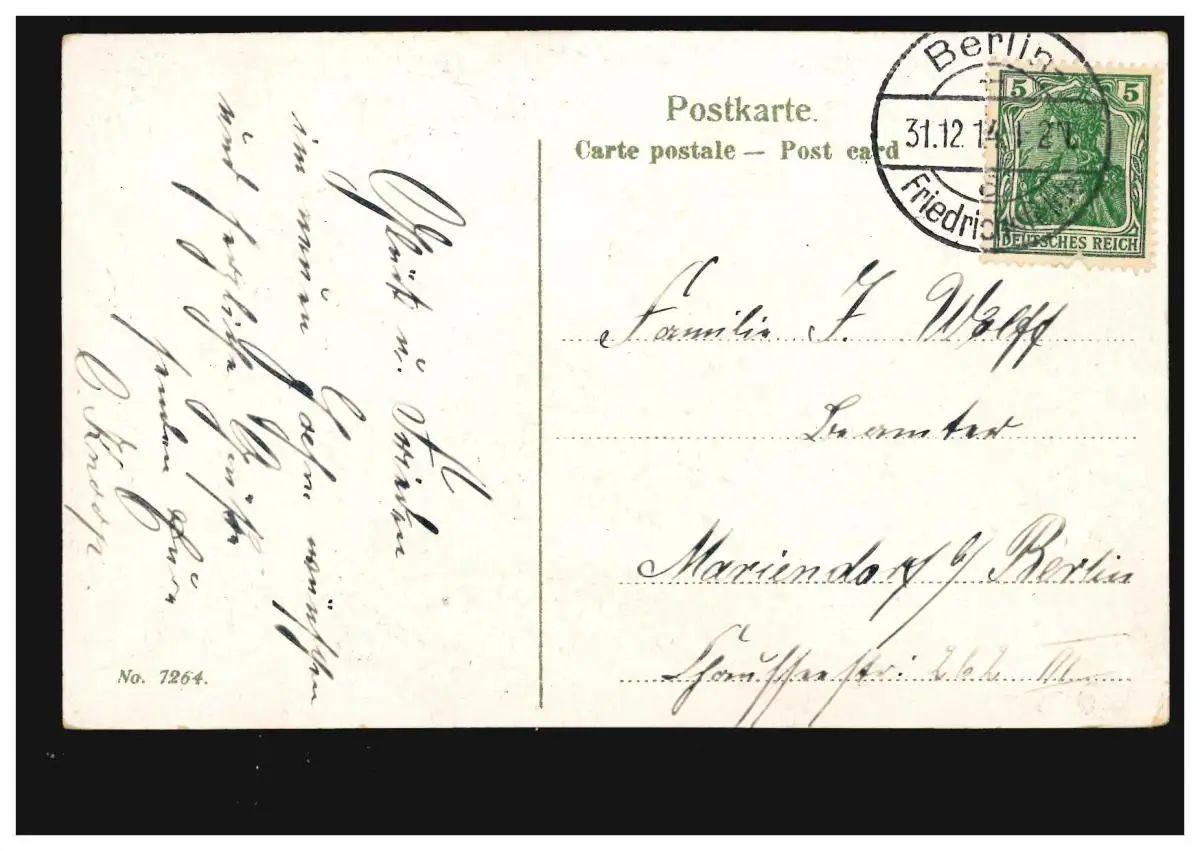 Postkarte.
Carte postale — Post card
Berlin-
31.12.14. 1-2 N.
Friedrichs
5 5
DEUTSCHES REICH
Familie F. Wolff
Beamter
Mariendorf b/ Berlin
Chausseestr. 262 III
Glück u. Frieden
im neuen Jahr wünschen
und herzliche Grüße
senden Euer
O. Knoop.
No. 7264.